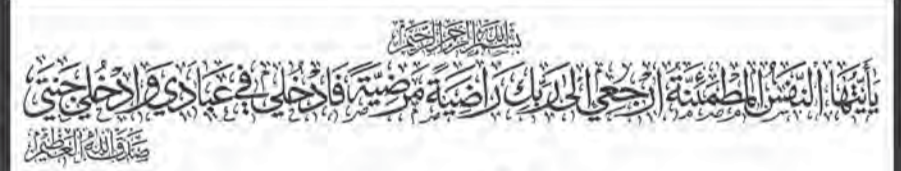 بسم الله الرحمن الرحيم
يَا أَيَّتُهَا النَّفْسُ الْمُطْمَئِنَّةُ ارْجِعِي إِلَى رَبِّكِ رَاضِيَةً مَرْضِيَّةً فَادْخُلِي فِي عِبَادِي وَادْخُلِي جَنَّتِي
صدق الله العظيم